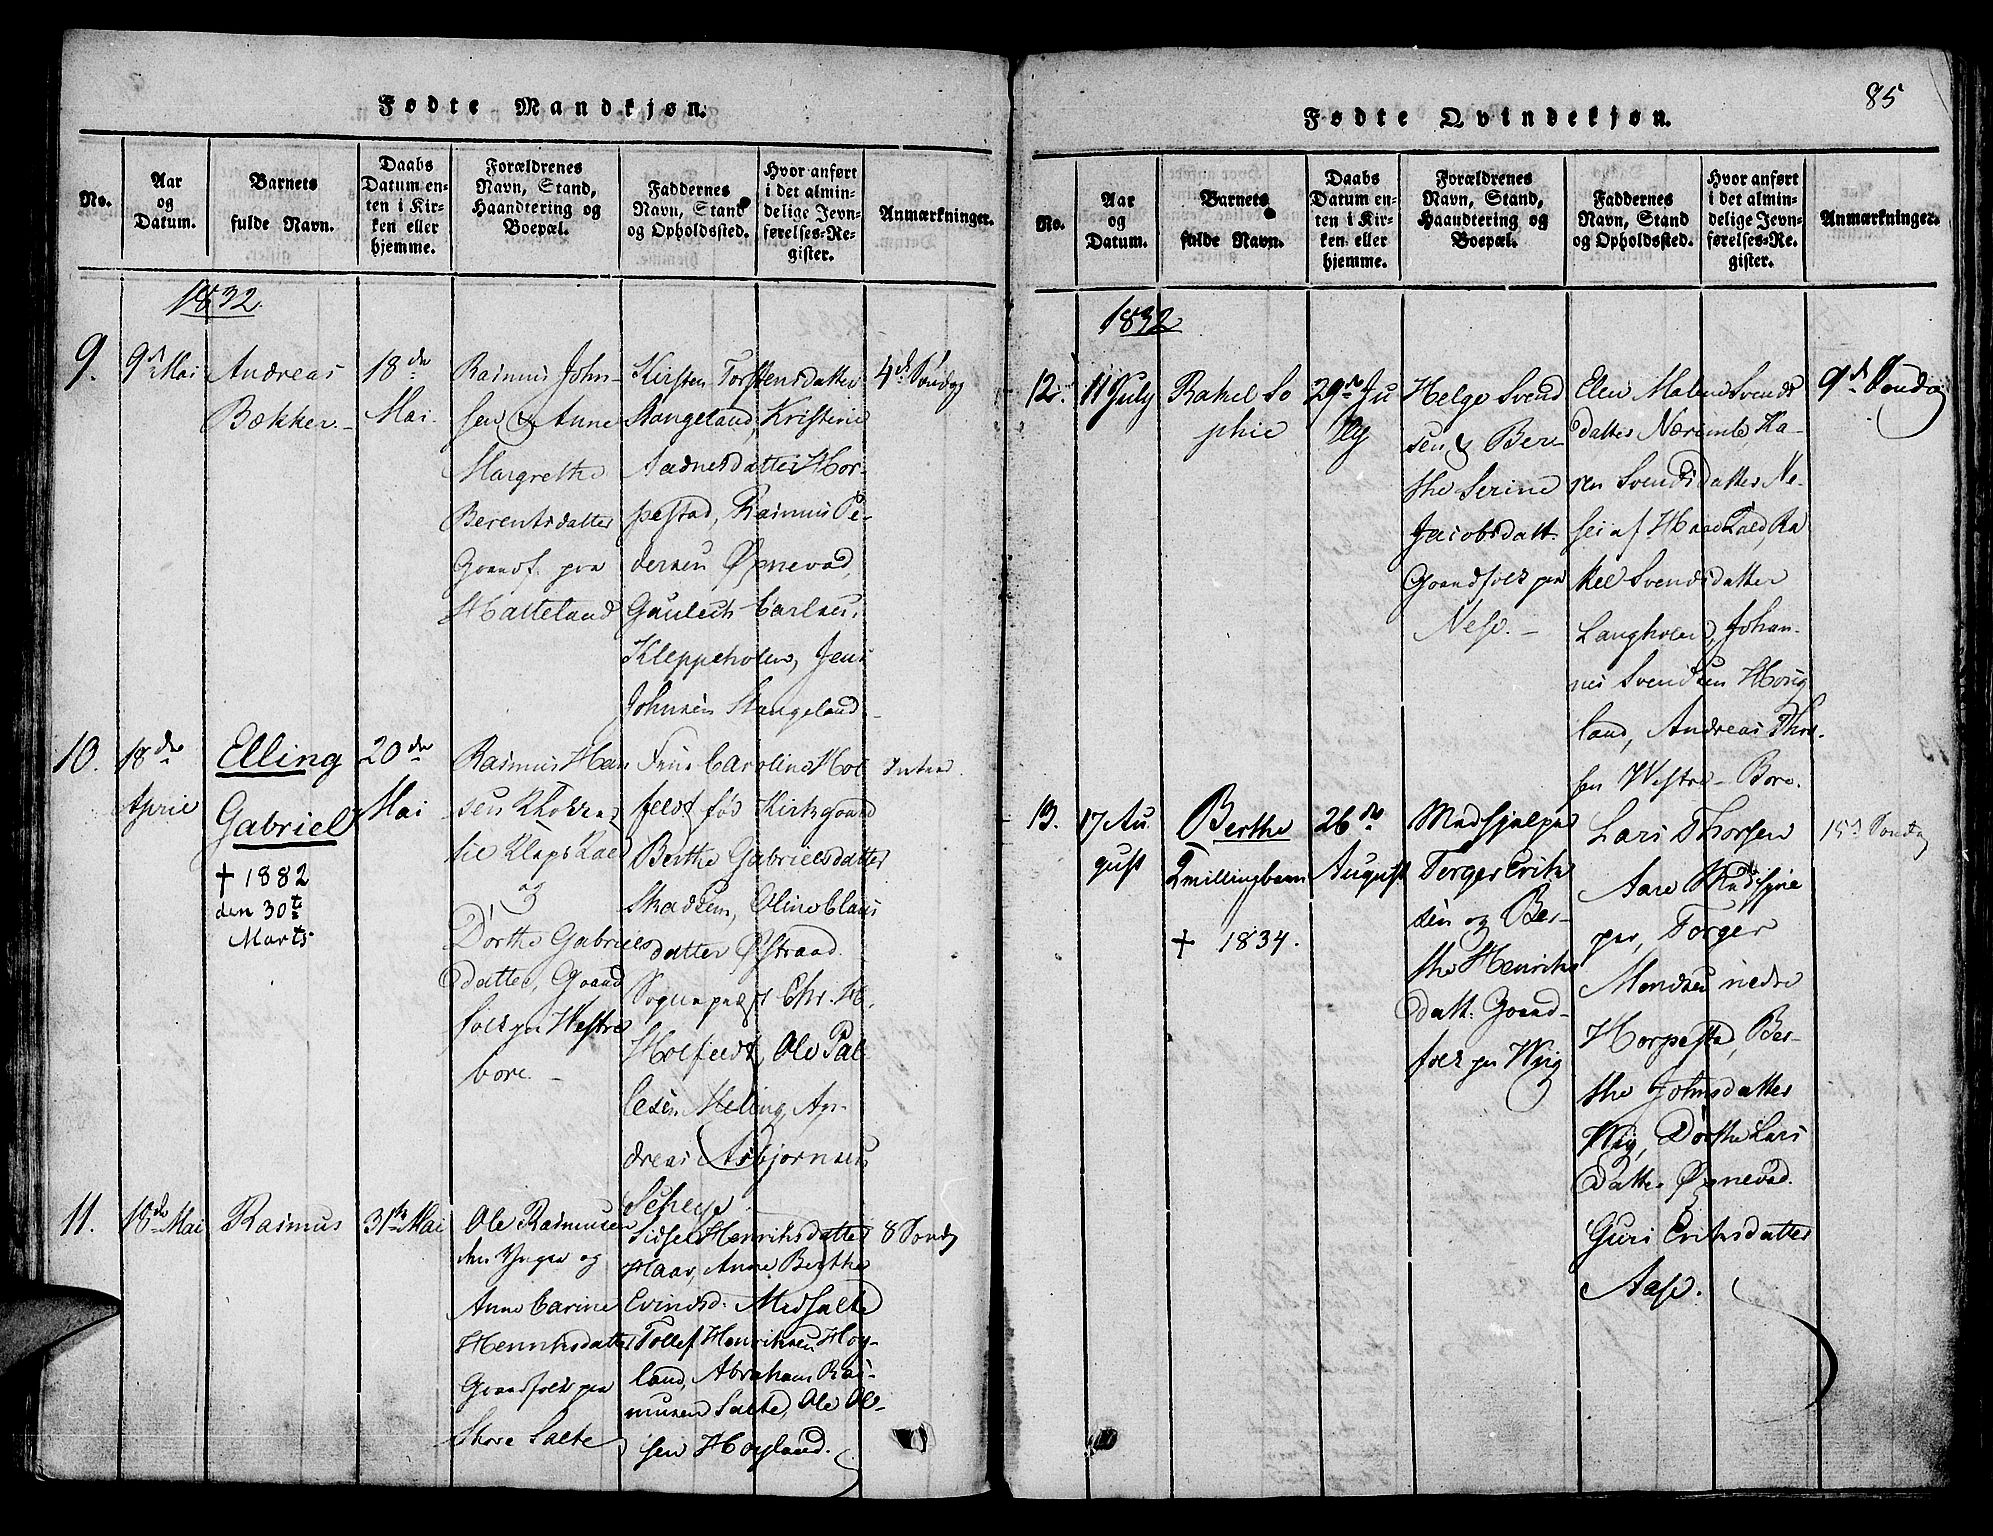 Fødte Mandkjøn.
No.
Aar
og
Datum.
Barnets
fulde Navn.
Daabs
Datum en-
ten i Kir-
ken eller
hjemme.
Forældrenes
Navn, Stand,
Haandtering og
Boepæl.
Faddernes
Navn, Stand
og Opholdssted.
Hvor anført
i det almin-
delige Jevn-
førelses-Re-
gister.
Anmærkninger.
1832.
9.
9d Mai
Andreas
Bækker.-
18de
Mai.
Rasmus John-
sen & Anne
Margrethe
Berentsdatter
Gaardf. paa
Hatteland
Kirsten Torstensdatter
Stangeland, Kristine
Aadnesdatter Hor-
pestad, Rasmus Pe-
dersen Øpnevad,
Carlsen,
Kleppeholen, Jens
Johnsen Stangeland
4d Søndag
10.
18de
April
Elling
Gabriel
† 1882
den 30te
Marts
20de
Mai
Rasmus Han
sen
og
Dorthe Gabriels
datter, Gaard
folk paa Westre
bore.-
Frue Caroline Hol
feldt fød Kirkgaard
Berthe Gabrielsdatter
Skadsem, Oline Claus
datter Østraad
Sognepræst Chr. H.
Holfeldt, Ole Pal-
lesen Meling, An-
dreas Asbjørnsen
11.
18de Mai
Rasmus
31te Mai
Ole Rasmusen
den Yngre og
Anne Carine
Henrihsdatter
Gaardfolk paa
Store Salte
Sidsel Henrihsdatter
Haar, Anne Berthe
Evindsd. Midsalte
Tollef Henriksen Høy-
land, Abraham Ras-
musen Salte, Ole Ol-
sen Høyland.
8 Søndag
85
Fødte Qvindekjøn.
No.
Aar
og
Datum.
Barnets
fulde Navn.
Daabs
Datum en-
ten i Kir-
ken eller
hjemme.
Forældrenes
Navn, Stand,
Haandtering og
Boepæl.
Faddernes
Navn, Stand
og Opholdssted.
Hvor anført
i det almin-
delige Jevn-
førelses-Re-
gister.
Anmærkninger.
1832
12.
11 July
Rakel So
phie
29de Ju
lly
Helge Svend
sen & Ber
the Serine
Jacobsdatt.
Gaardfolk paa
Nese.-
Elen Malene Svends
datter Nærimb, Ka-
ren Svendsdatter Ne-
sei af Haadland, Ra
kel Svendsdatter
Langholen, Johan-
nes Svendsen Høig
land, Andreas Thor-
sen Westre-Bore.
9d Søndag
13.
17 Au
gust
Berthe
Tvillingbarn
† 1834.
26de
August
Torger Erik
sen og Ber-
the Henriks
datt. Gaard-
folk paa Wiig
Lars Thorsen
Aare
per, Torger
Mondsen nedre
Horpestad, Ber-
the Johnsdatter
Wiig, Dorthe Lars
datter Øpnevad.
Guri Erihsdatter
Aase.
15d Søndag